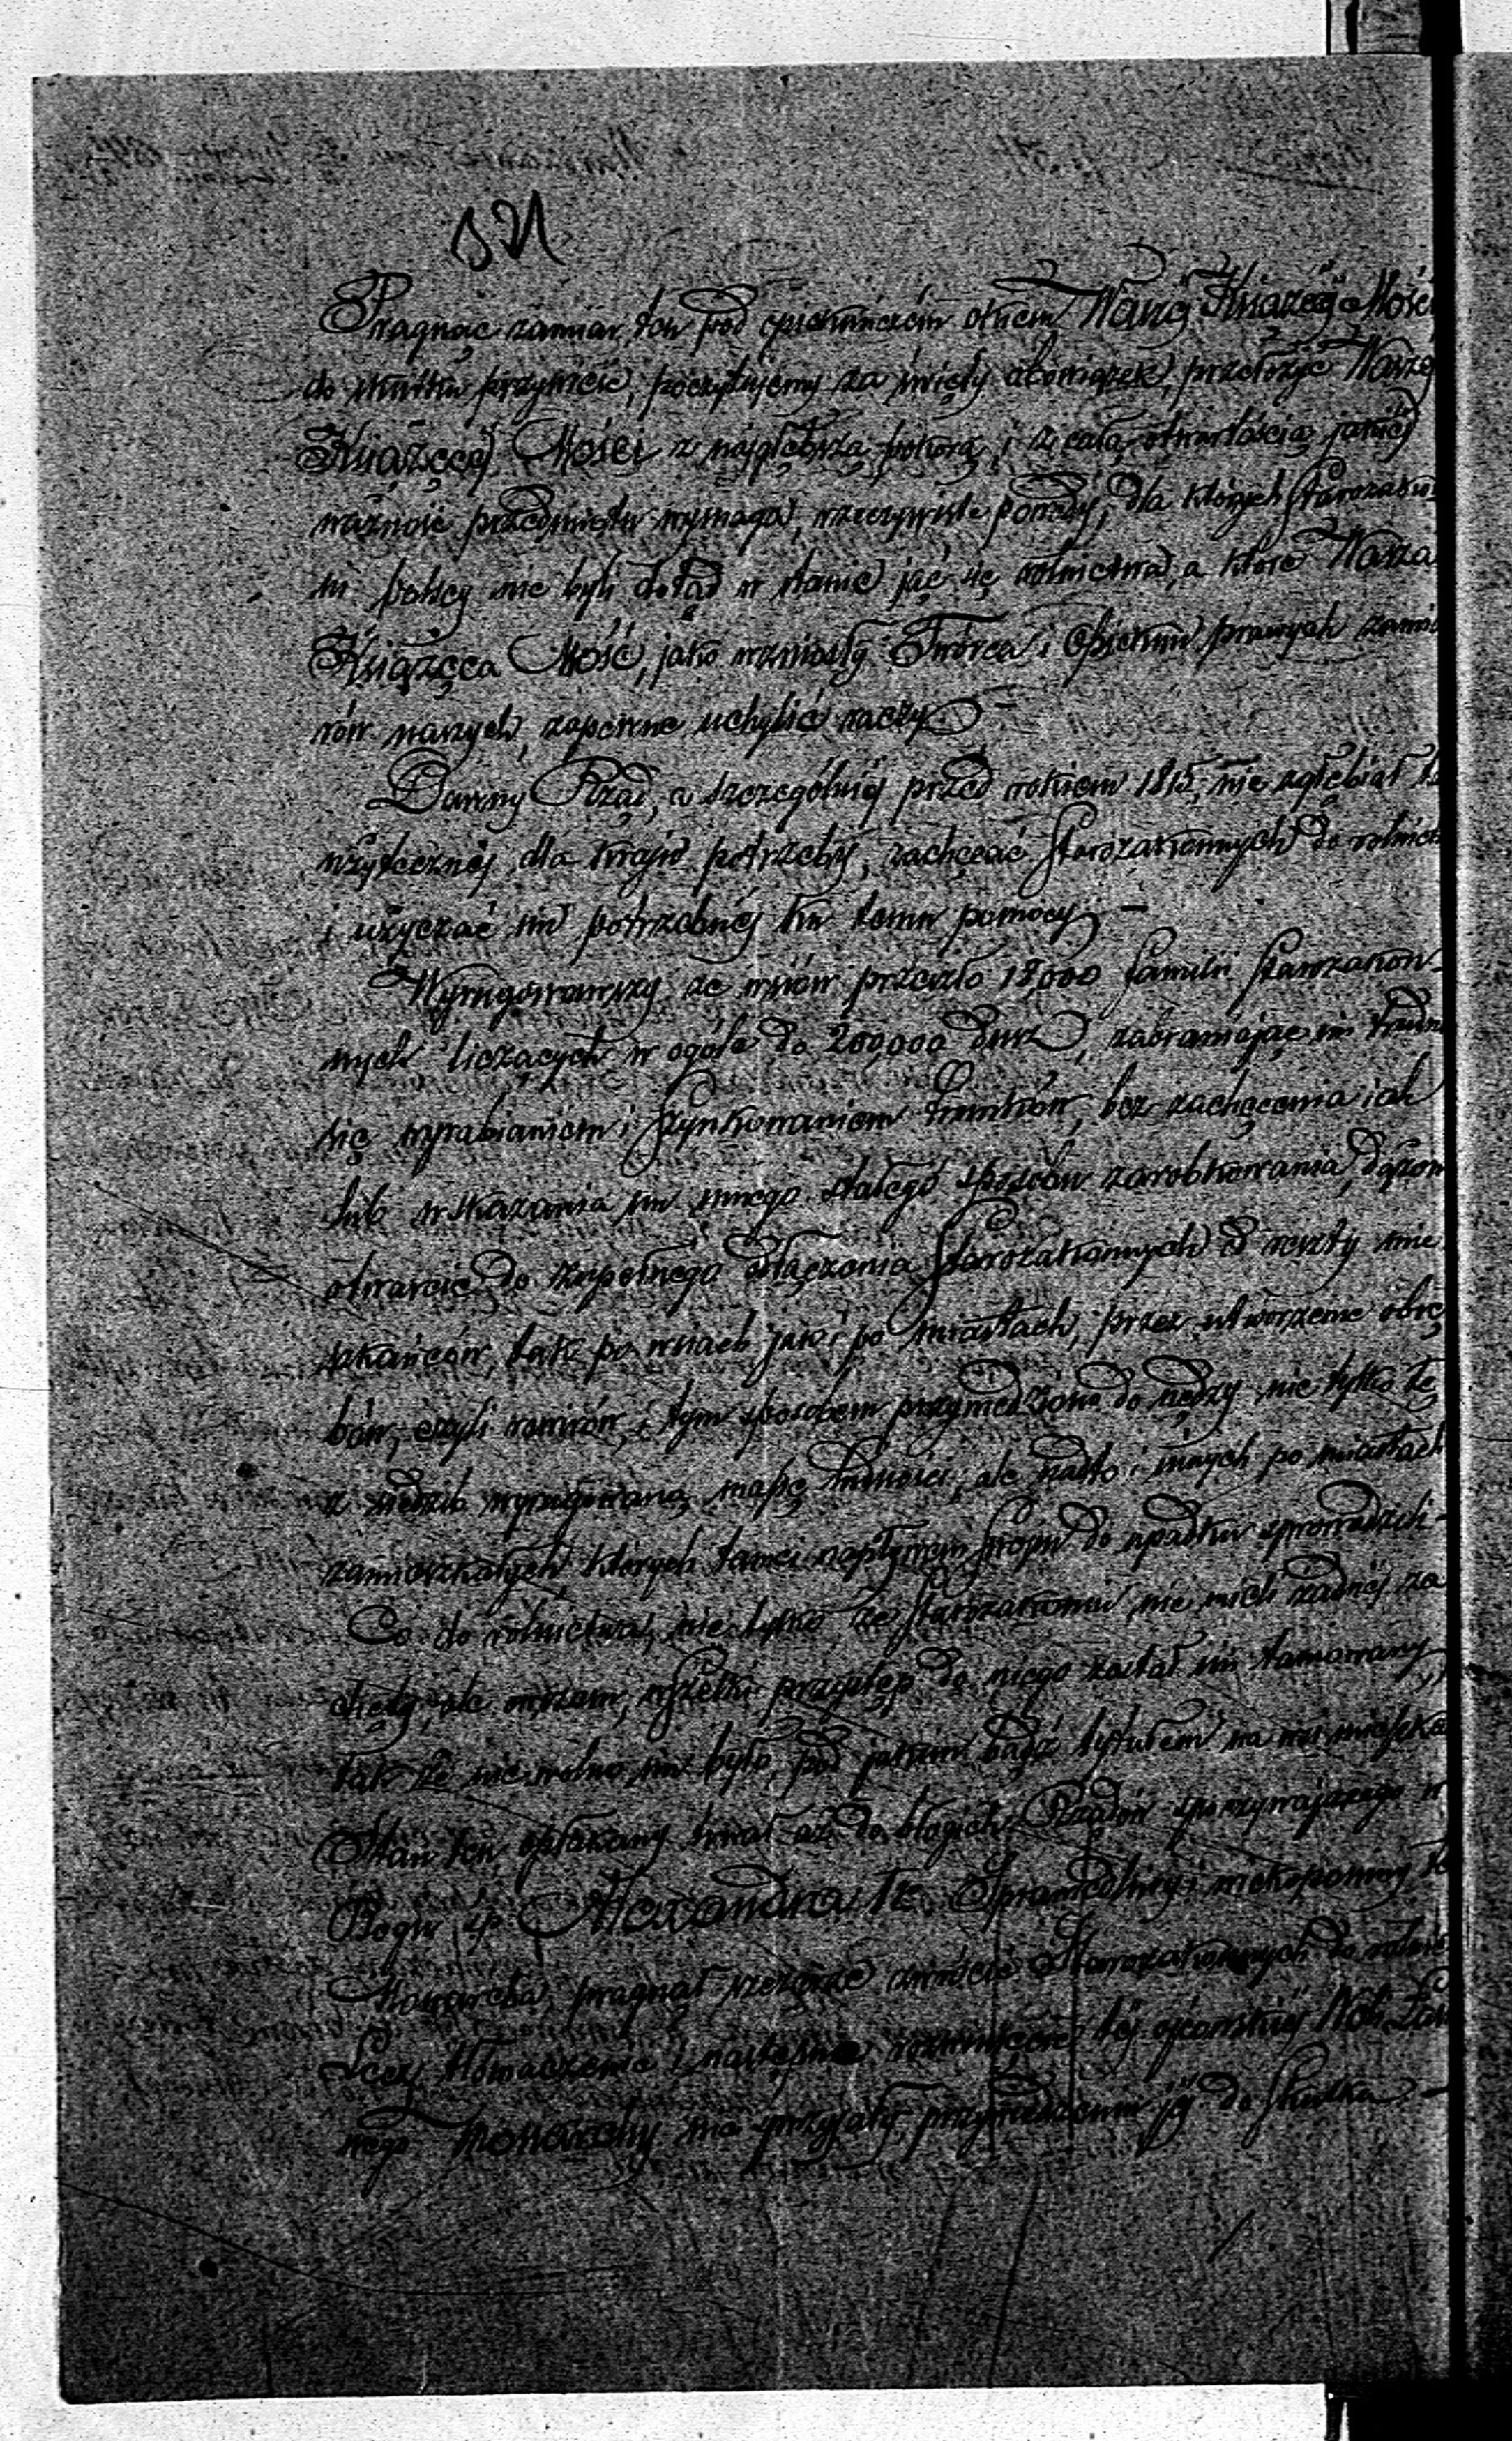 Pragnąc zamiar ten pod opiekuńczém okiem Waszéj Książęcéj Mości
do skutku przywieść, poczytujemy za święty obowiązek, przełożyć Waszéj
Książęcéj Mości z najgłębszą pokorą, i z całą otwartością jakiéj
ważność przedmiotu wymaga, rzeczywiste powody, dla których Starozakon
ni polscy nie byli dotąd w stanie jąć się rolnictwa, a które Wasza
Książęca Mość, jako wzniosły Twórca i Opiekun prawych zamia
rów naszych, zapewne uchylić raczy. —
Dawny Rząd, a szczególniéj przed rokiem 1815, nie zgłębiał
użytecznéj dla kraju potrzeby, zachęcać Starozakonnych do rolnic
i użyczać im potrzebnéj ku temu pomocy. —
Wyrugowawszy ze wsiów przeszło 18,000 familii Starozakon
nych liczących w ogóle do 200,000 dusz, zabraniając im trudn
się wyrabianiem i szynkowaniem trunków, bez zachęcenia ich
lub wskazania im innego stałego sposobu zarobkowania, dążon
otwarcie do zupełnego odłączenia Starozakonnych od reszty mie
szkańców, tak po wsiach jak i po miastach, przez utworzenie obrę
bów, czyli rewirów, i tym sposobem przywiedziono do nędzy nie tylko tę
z siedzib wyrugowaną massę ludności, ale nadto i innych po miastach
zamieszkałych, których tamci napływem swoim do upadku sprowadzili —
Co do rolnictwa, nie tylko że Starozakonni nie mieli żadnéj za
chęty, ale owszem, wszelki przystęp do niego został im tamowany,
tak że nie wolno im było, pod jakim bądź tytułem na wsi mieszkać
Stan ten opłakany trwał aż do błogich Rządów spoczywającego w
Bogu śp. Alexandra Igo. Sprawiedliwy i niekopomny
Monarcha, pragnął szczerze zwrócić Starozakonnych do rolnic
Lecz tłomaczenie i następnie rozwinięcie téj ojcowskiéj Woli
nego Monarchy nie sprzyjały przywiedzeniu jéj do skutku —